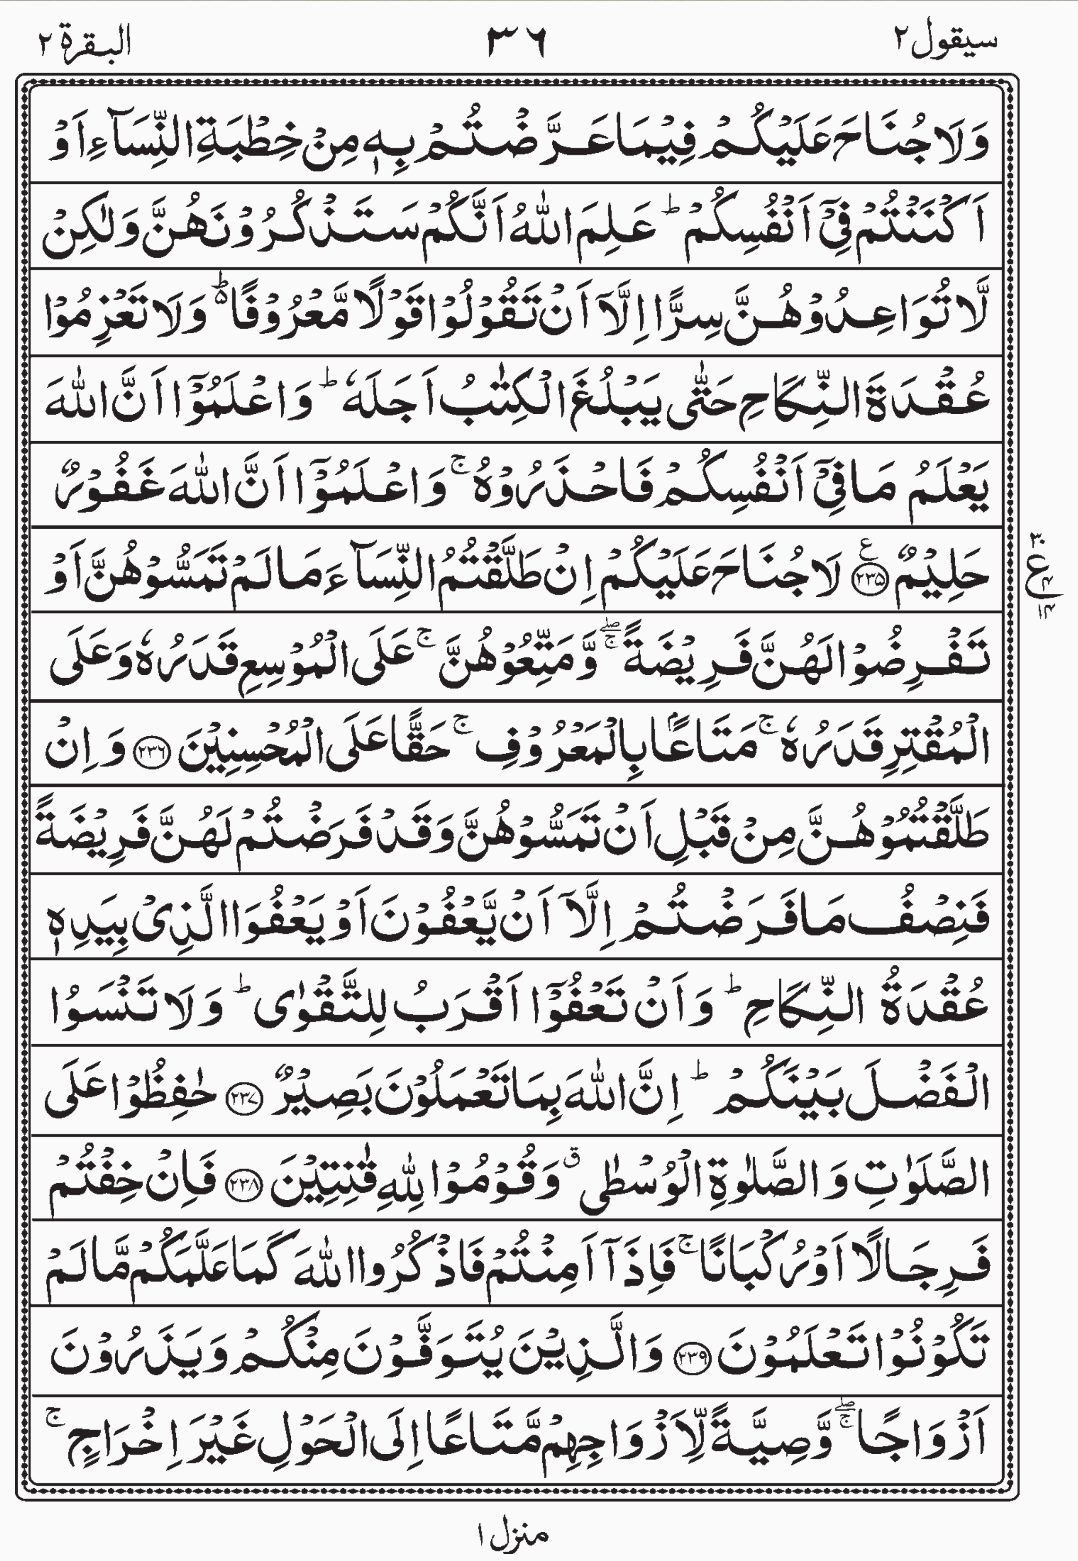 سيقول ٢
٣٦
البقرة ٢
وَلَا جُنَاحَ عَلَيْكُمْ فِيْمَا عَرَّضْتُمْ بِهٖ مِنْ خِطْبَةِ النِّسَآءِ اَوْ
اَكْنَنْتُمْ فِيْٓ اَنْفُسِكُمْ ؕ عَلِمَ اللّٰهُ اَنَّكُمْ سَتَذْكُرُوْنَهُنَّ وَلٰكِنْ
لَّا تُوَاعِدُوْهُنَّ سِرًّا اِلَّآ اَنْ تَقُوْلُوْا قَوْلًا مَّعْرُوْفًا ۬ؕ وَلَا تَعْزِمُوْا
عُقْدَةَ النِّكَاحِ حَتّٰى يَبْلُغَ الْكِتٰبُ اَجَلَهٗ ؕ وَاعْلَمُوْٓا اَنَّ اللّٰهَ
يَعْلَمُ مَا فِيْٓ اَنْفُسِكُمْ فَاحْذَرُوْهُ ۚ وَاعْلَمُوْٓا اَنَّ اللّٰهَ غَفُوْرٌ
حَلِيْمٌ ﴿٢٣٥﴾ ع لَا جُنَاحَ عَلَيْكُمْ اِنْ طَلَّقْتُمُ النِّسَآءَ مَا لَمْ تَمَسُّوْهُنَّ اَوْ
٣٠
ع
٤
١٤
تَفْرِضُوْا لَهُنَّ فَرِيْضَةً ۖۚ وَّمَتِّعُوْهُنَّ ۚ عَلَى الْمُوْسِعِ قَدَرُهٗ وَعَلَى
الْمُقْتِرِ قَدَرُهٗ ۚ مَتَاعًۢا بِالْمَعْرُوْفِ ۚ حَقًّا عَلَى الْمُحْسِنِيْنَ ﴿٢٣٦﴾ وَاِنْ
طَلَّقْتُمُوْهُنَّ مِنْ قَبْلِ اَنْ تَمَسُّوْهُنَّ وَقَدْ فَرَضْتُمْ لَهُنَّ فَرِيْضَةً
فَنِصْفُ مَا فَرَضْتُمْ اِلَّآ اَنْ يَّعْفُوْنَ اَوْ يَعْفُوَا الَّذِيْ بِيَدِهٖ
عُقْدَةُ النِّكَاحِ ؕ وَاَنْ تَعْفُوْٓا اَقْرَبُ لِلتَّقْوٰى ؕ وَلَا تَنْسَوُا
الْفَضْلَ بَيْنَكُمْ ؕ اِنَّ اللّٰهَ بِمَا تَعْمَلُوْنَ بَصِيْرٌ ﴿٢٣٧﴾ حٰفِظُوْا عَلَى
الصَّلَوٰتِ وَالصَّلٰوةِ الْوُسْطٰى ق وَقُوْمُوْا لِلّٰهِ قٰنِتِيْنَ ﴿٢٣٨﴾ فَاِنْ خِفْتُمْ
فَرِجَالًا اَوْ رُكْبَانًا ۚ فَاِذَآ اَمِنْتُمْ فَاذْكُرُوا اللّٰهَ كَمَا عَلَّمَكُمْ مَّا لَمْ
تَكُوْنُوْا تَعْلَمُوْنَ ﴿٢٣٩﴾ وَالَّذِيْنَ يُتَوَفَّوْنَ مِنْكُمْ وَيَذَرُوْنَ
اَزْوَاجًا ۖۚ وَّصِيَّةً لِّاَزْوَاجِهِمْ مَّتَاعًا اِلَى الْحَوْلِ غَيْرَ اِخْرَاجٍ ۚ
منزل ١